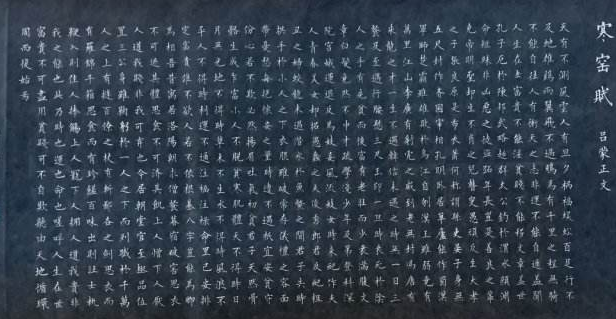 寒窑賦 呂蒙正文
天有不測風雲人有旦夕禍福蜈蚣百足行不
及地雄鷄兩翼飛不過鴉馬有千里之程無騎
不能自往人有衝天之志非運不能自通蓋聞
人生在世富貴不能淫貧賤不能移文章蓋世
孔子厄於陳邦武略超群太公釣於渭水顏淵
命短殊非凶惡之徒盜跖年長豈是善良之輩
堯帝明聖卻生不肖之兒瞽叟愚頑反生大孝
之子張良原是布衣蕭何稱謂縣吏晏子身無
五尺封作齊國宰相孔明臥居草廬能作蜀漢
軍師楚霸雖雄敗於烏江自刎漢王雖弱竟有
萬里江山李廣有射虎之威到老無封馮唐有
乘龍之才一生不遇韓信未遇之時無一日三
餐及至遇行腰懸三尺玉印一旦時衰死於陰
人之手有先貧而後富有老壯而少衰滿腹文
章白髮竟然不中才疏學淺少年及第登科深
院宮娥運退反為妓妾風流妓女時來配作夫
人青春美女卻招愚蠢之夫俊秀郎君反配粗
丑之婦蛟龍未遇潛水於魚鱉之間君子失時
拱手於小人之下衣服雖破常存儀禮之容面
帶憂愁每抱懷安之量時遭不遇祇宜安貧守
份心若不欺必然揚眉吐氣初貧君子天然骨
骼生成乍富小人不脫貧寒肌體天不得時日
月無光地不得時草木不生水不得時風浪不
平人不得時利運不通注福注祿命里已安排
定富貴誰不欲人若不依根基八字豈能為卿
為相吾昔寓居洛陽朝求僧餐暮宿破窖思衣
不可遮其體思食不可濟其飢上人憎下人厭
人道我賤非我可有也今居朝堂官至極品位
置三公身雖鞠躬於一人之下而列職於千萬
人之上有撻百僚之杖有斬鄙吝之劍思衣而
有羅綿千箱思食而有珍饈百味出則壯士執
鞭入則佳人捧觴上人寵下人擁人道我貴非
我之能也此乃時也運也命也嗟呼人生在世
富貴不可盡用貧賤不可自欺聽由天地循環
周而復始焉